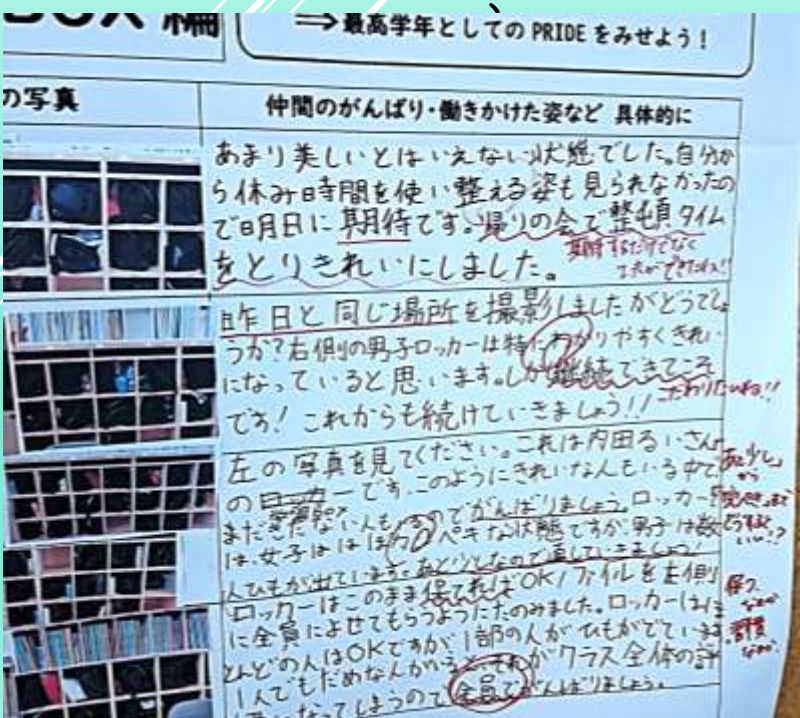 BOX 編
⇒最高学年としての PRIDE をみせよう！
の写真
仲間のがんばり・働きかけた姿など 具体的に
あまり美しいとはいえない状態でした。自分か
ら休み時間を使い整える姿も見られなかったの
で明日に期待です。帰りの会で整頓タイム
をとりきれいにしました。
期待するだけでなく
工夫ができたね!!
昨日と同じ場所を撮影しましたがどうでしょ
うか？右側の男子ロッカーは特にわかりやすくきれい
になっていると思います。しか継続できてこそ
こだわりたいね!!
です！これからも続けていきましょう!!
左の写真を見てください。これは内田るいさん
のロッカーです。このようにきれいな人もいる中で
まだきたない人もいるのでがんばりましょう。ロッカー
は、女子はほぼかんぺきな状態ですが、男子は数
人ひもが出ています。あと少しなので直していきましょう！
あと少し
から
完ぺきまで
どうすれば
いい!?
ロッカーはこのまま保てればOK！ファイルを左側
に全員によせてもらうようにたのみました。ロッカーはほ
とんどの人はOKですが1部の人がひもがでています。
1人でもだめな人がいるとそれがクラス全体の評
になってしまうので全員でがんばりましょう。
保つ
習慣